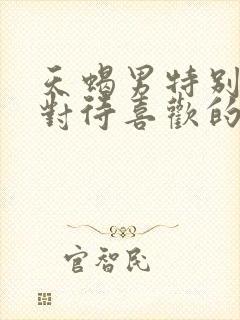 天蝎男特别
對待喜歡的
官智民